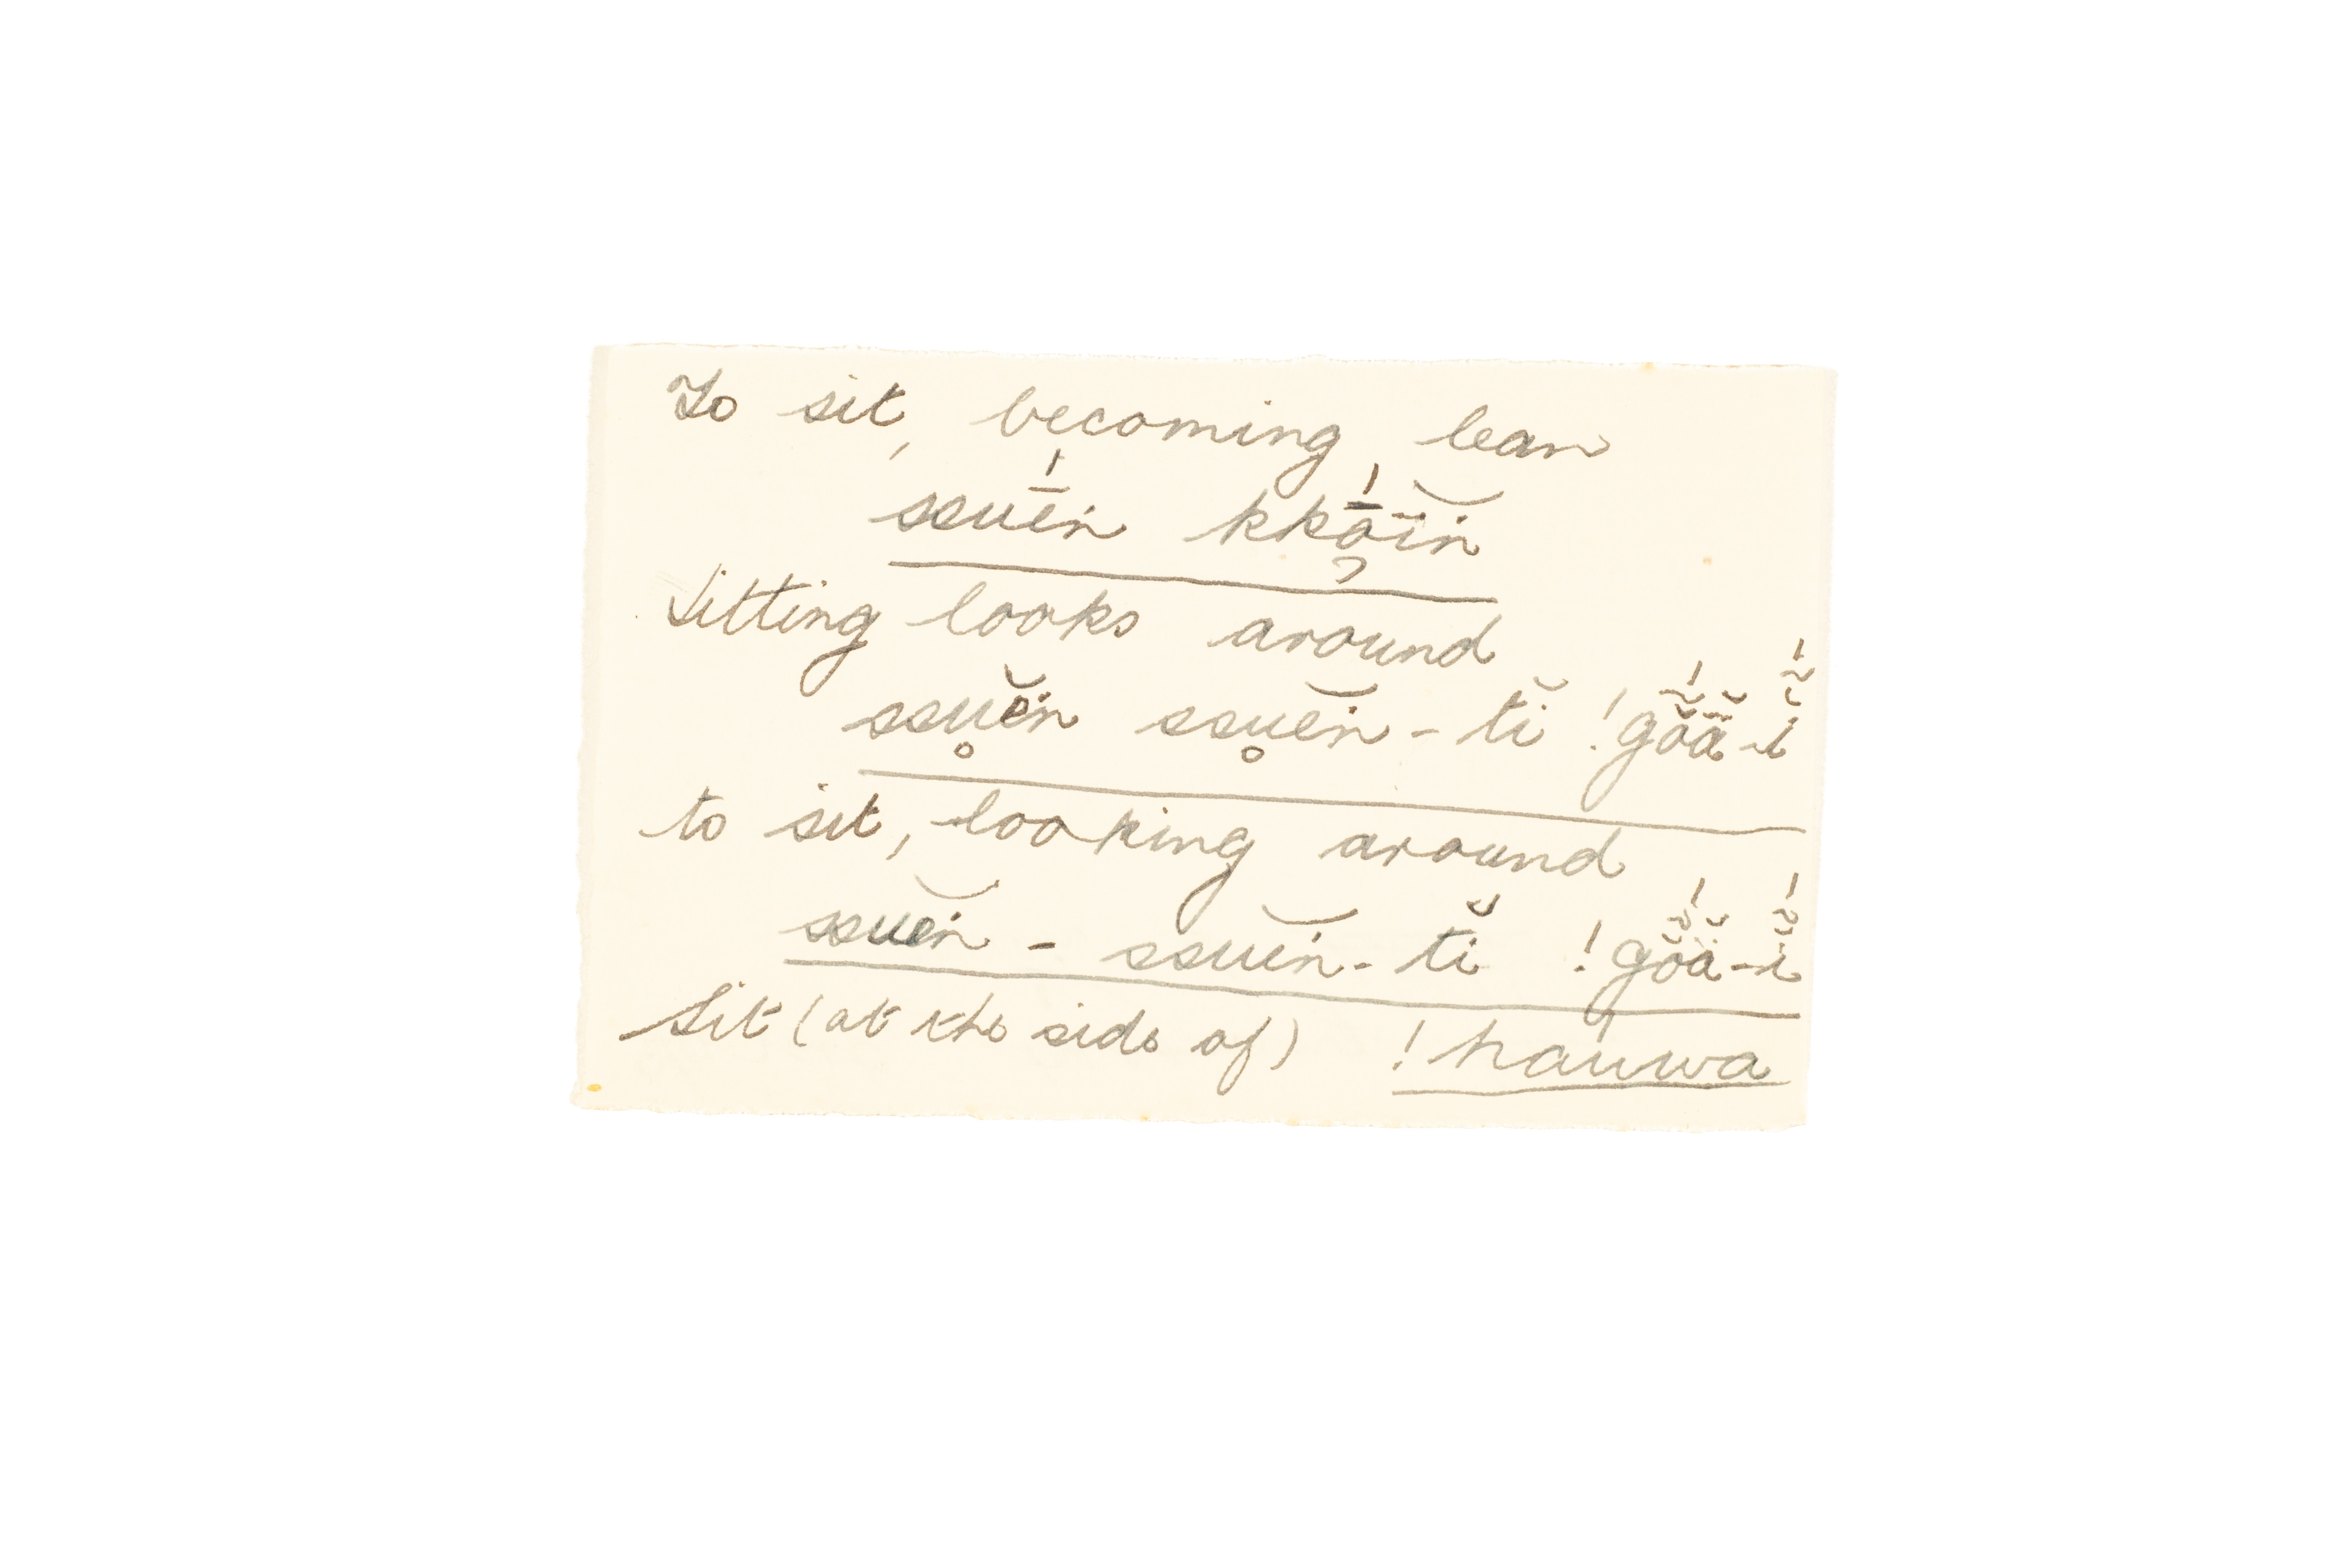 To sit, becoming lean
ssuē̍ṅ kkā̍ɔĭṅ
Sitting looks around
ssu̥ĕṅ ssu̥ĕṅ - tĭ !gõ̍ä̆-ĭ̃̍
to sit, looking around
ssuĕṅ - ssuĕṅ - tĭ !gõ̍ä̆-ĭ̃̍
Sit (at the side of) !haúwa